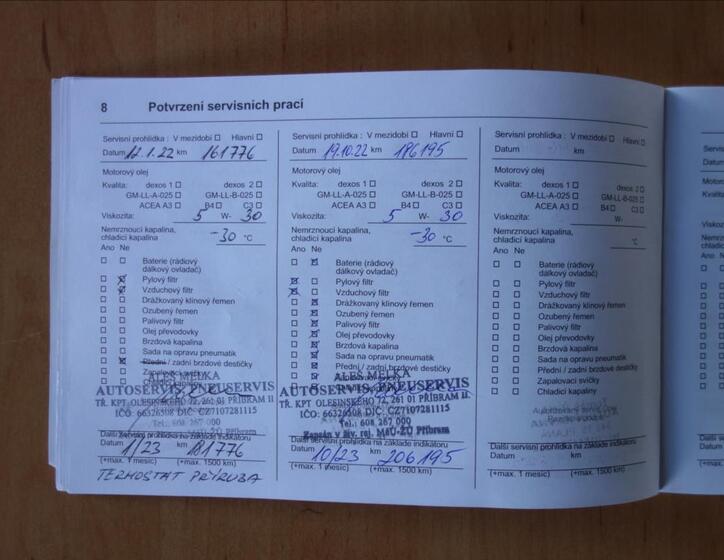 8 Potvrzení servisních prací
Servisní prohlídka : V mezidobí Hlavní
Datum 12.1.22 km 161776
Motorový olej
Kvalita: dexos 1 dexos 2
GM-LL-A-025 GM-LL-B-025
ACEA A3 B4 C3
Viskozita: 5 W- 30
Nemrznoucí kapalina,
chladicí kapalina -30 °C
Ano Ne
Baterie (rádiový
dálkový ovladač)
Pylový filtr
Vzduchový filtr
Drážkovaný klínový řemen
Ozubený řemen
Palivový filtr
Olej převodovky
Brzdová kapalina
Sada na opravu pneumatik
Přední / zadní brzdové destičky
Zapalovací svíčky
ALEŠ MELKA
AUTOSERVIS, PNEUSERVIS
TŘ. KPT. OLESINSKÉHO 72, 261 01 PŘÍBRAM II
IČO: 66326508 DIČ: CZ7107281115
Tel.: 608 267 000
MěÚ-ŽÚ Příbram
Další servisní prohlídka na základě indikátoru
Datum 1/23 km 181776
(+max. 1 měsíc) (+max. 1500 km)
TERMOSTAT PŘÍRUBA
Servisní prohlídka : V mezidobí Hlavní
Datum 19.10.22 km 186195
Motorový olej
Kvalita: dexos 1 dexos 2
GM-LL-A-025 GM-LL-B-025
ACEA A3 B4 C3
Viskozita: 5 W- 30
Nemrznoucí kapalina,
chladicí kapalina -30 °C
Ano Ne
Baterie (rádiový
dálkový ovladač)
Pylový filtr
Vzduchový filtr
Drážkovaný klínový řemen
Ozubený řemen
Palivový filtr
Olej převodovky
Brzdová kapalina
Sada na opravu pneumatik
Přední / zadní brzdové destičky
ALEŠ MELKA
AUTOSERVIS, PNEUSERVIS
TŘ. KPT. OLESINSKÉHO 72, 261 01 PŘÍBRAM II
IČO: 66326508 DIČ: CZ7107281115
Tel.: 608 267 000
Zapsán v živ. rej. MěÚ-ŽÚ Příbram
Další servisní prohlídka na základě indikátoru
Datum 10/23 km 206195
(+max. 1 měsíc) (+max. 1500 km)
Servisní prohlídka : V mezidobí Hlavní
Datum km
Motorový olej
Kvalita: dexos 1 dexos 2
GM-LL-A-025 GM-LL-B-025
ACEA A3 B4 C3
Viskozita: W-
Nemrznoucí kapalina,
chladicí kapalina °C
Ano Ne
Baterie (rádiový
dálkový ovladač)
Pylový filtr
Vzduchový filtr
Drážkovaný klínový řemen
Ozubený řemen
Palivový filtr
Olej převodovky
Brzdová kapalina
Sada na opravu pneumatik
Přední / zadní brzdové destičky
Zapalovací svíčky
Chladicí kapaliny
Další servisní prohlídka na základě indikátoru
Datum km
(+max. 1 měsíc) (+max. 1500 km)